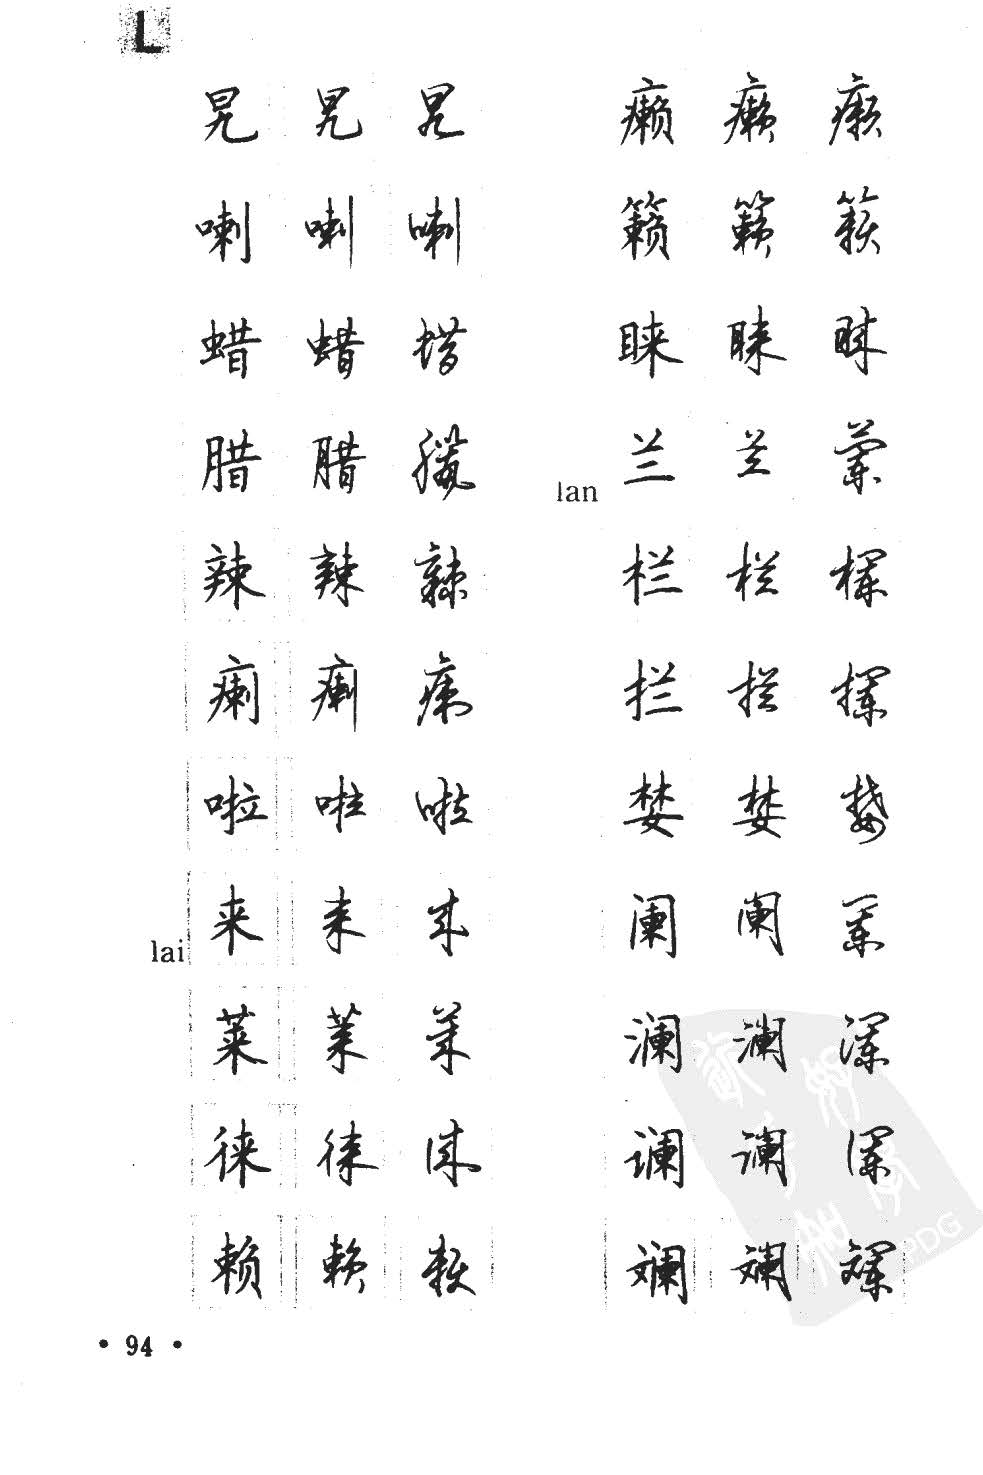 L
旯 旯 旯
喇 喇 喇
蜡 蜡 蜡
腊 腊 臘
辣 辣 辣
瘌 瘌 瘌
啦 啦 啦
lai 来 来 来
莱 莱 莱
徕 徕 徕
赖 赖 赖
癞 癞 癞
籁 籁 籁
睐 睐 睐
lan 兰 兰 蘭
栏 栏 欄
拦 拦 攔
婪 婪 婪
阑 阑 闌
澜 澜 瀾
谰 谰 讕
斓 斓 斕
PDG
• 94 •